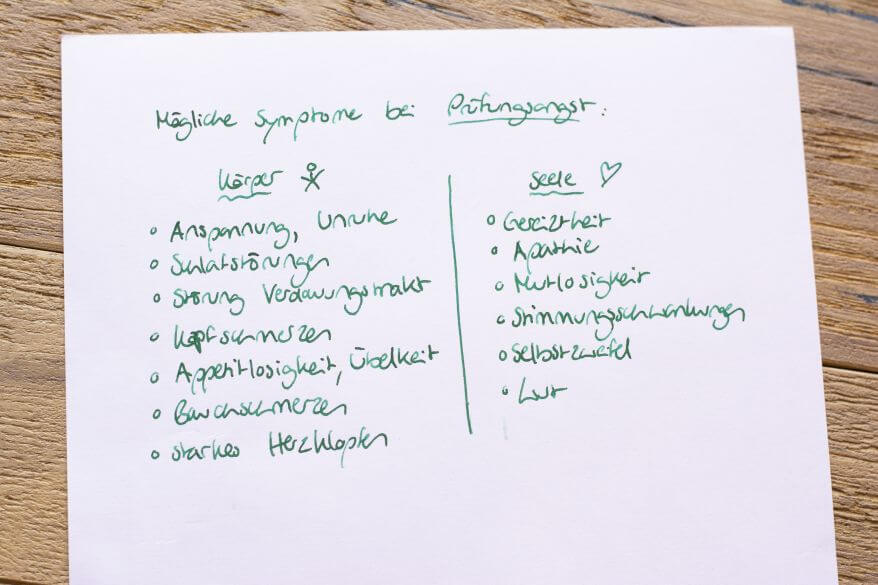 Mögliche Symptome bei Prüfungsangst:
Körper
• Anspannung, Unruhe
• Schlafstörungen
• Störung Verdauungstrakt
• Kopfschmerzen
• Appetitlosigkeit, Übelkeit
• Bauchschmerzen
• starkes Herzklopfen
Seele
• Gereiztheit
• Apathie
• Mutlosigkeit
• Stimmungsschwankungen
• Selbstzweifel
• Wut